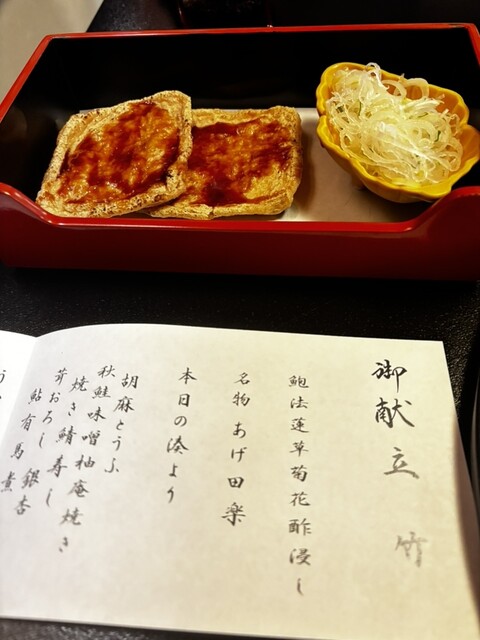 御献立 竹
鮑法蓮草菊花酢浸し
名物 あげ田楽
本日の湊より
胡麻とうふ
秋鮭味噌柚庵焼き
焼き鯖寿し
茸おろし 銀杏
鮎有馬煮